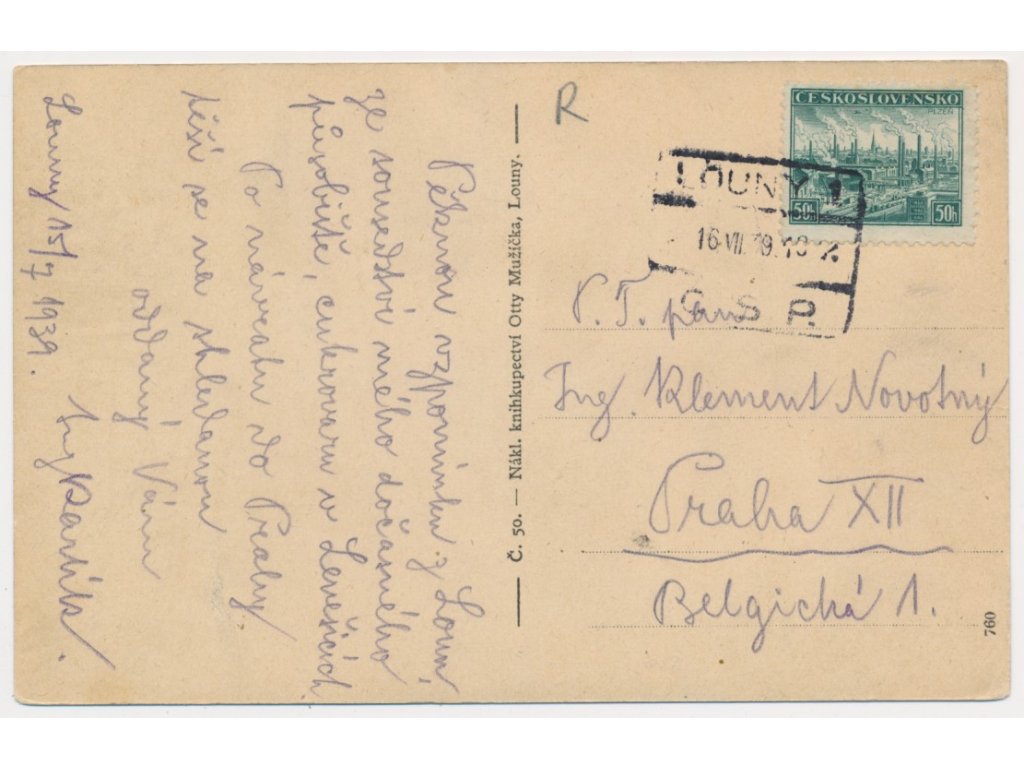 Pěknou vzpomínku z Loun,
ze sousedství mého dočasného
působiště, cukrovaru v Lenešicích
Po návratu do Prahy
těší se na shledanou
oddaný Vám
Ing
Louny 15/7 1939.
Č. 50. — Nákl. knihkupectví Otty Mužíčka, Louny.
R
ČESKOSLOVENSKO
PLZEŇ
50h 50h
LOUNY 1
16.VII.
Č S P.
P. T. pan
Ing. Klement Novotný
Praha XII
Belgická 1.
760